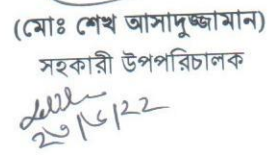 (মোঃ শেখ আসাদুজ্জামান)
সহকারী উপপরিচালক